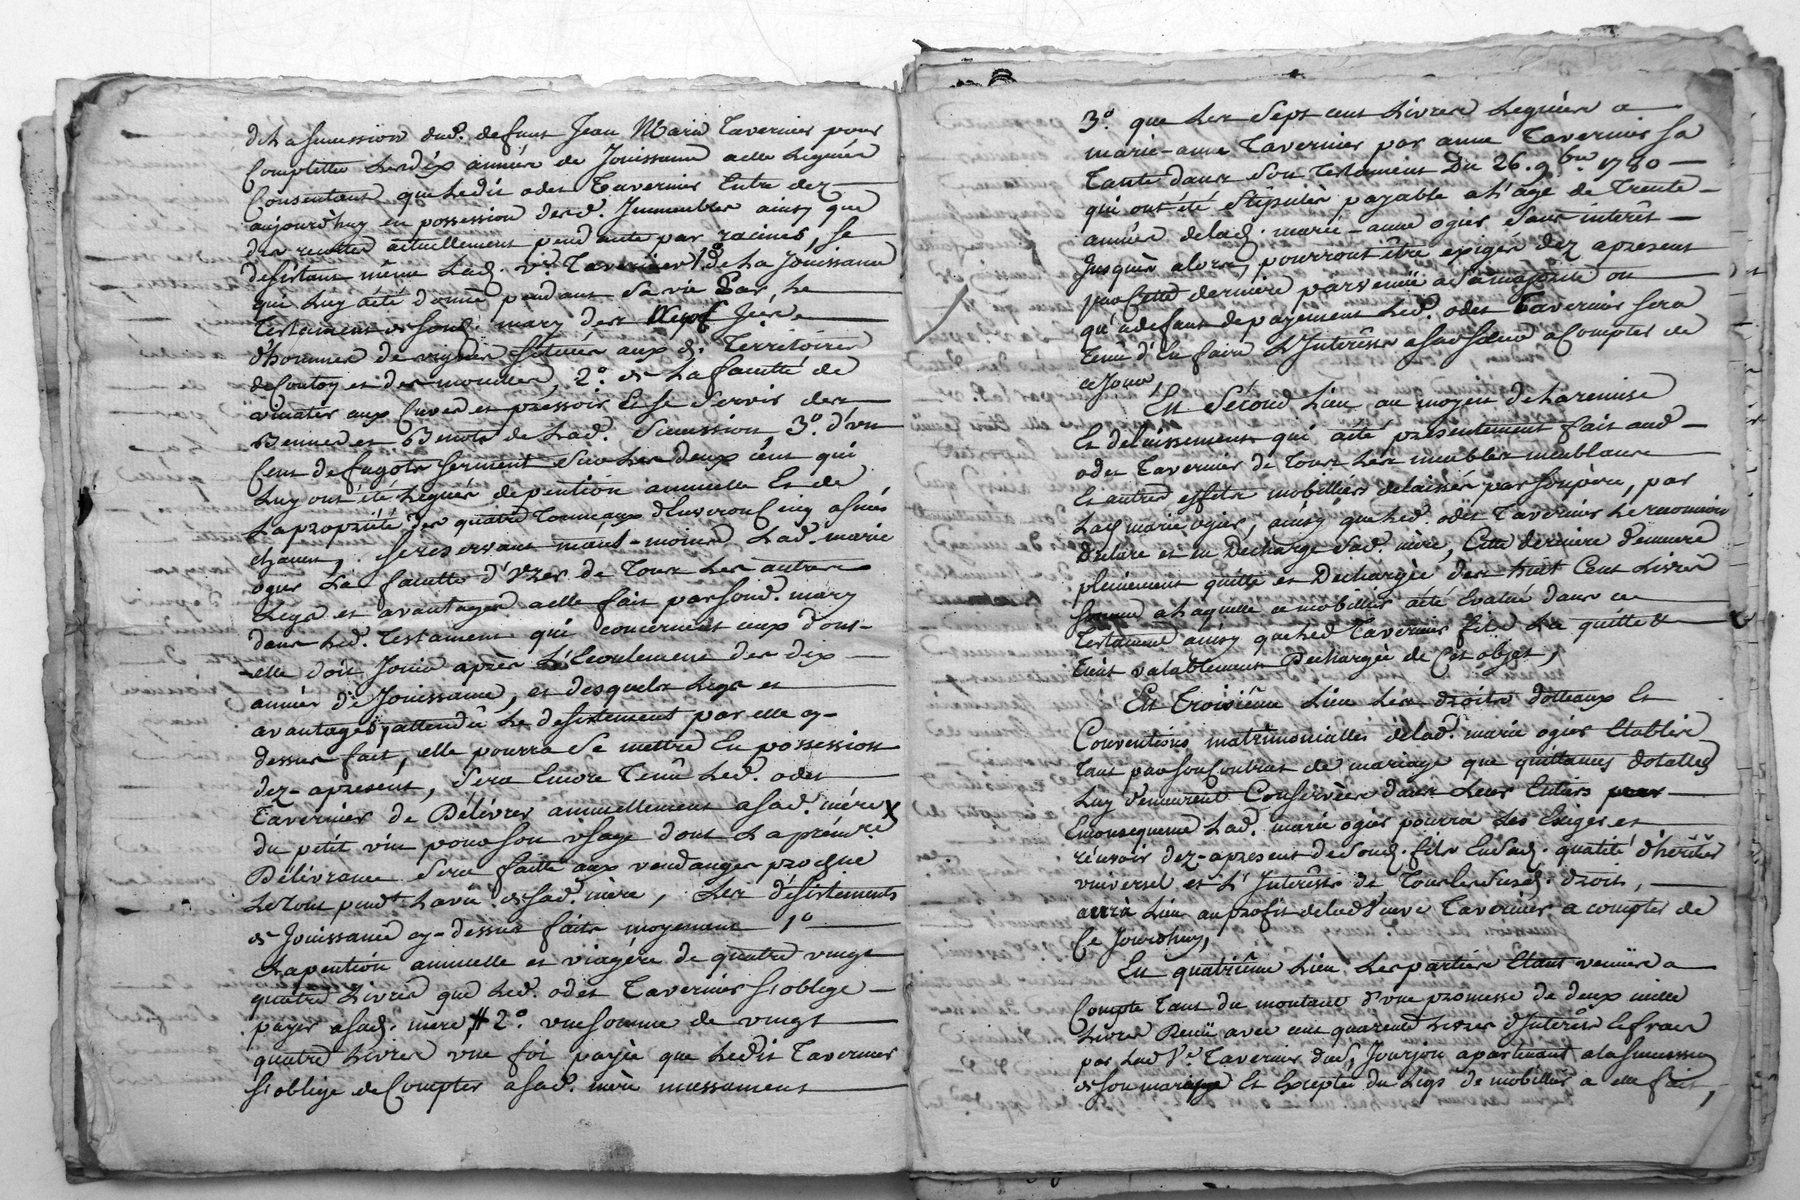 de la sucession dud. defunt Jean Marie Tavernier pour
Completter les dix années de Jouissance a elle leguées
Consentant que ledit odet Tavernier Entre dez
aujourd'huy en possession desd. Immeubles ainsy que
des recoltes actuellement pendante par racines, se
desistant même lad. ve. Tavernier 1o. de la Jouissance
qui luy a été donné pendant sa vie Par le
Testament de son d. mary des Neuf Jeés
d'hommes de vignes situées aux d. Territoires
de Coutoy et des mouilles, 2o. de la faculté de
aux Cuves et pressoir Et se servir des
Bennes et Benots de lad. Sucession 3o. d'un
Cent de fagots serment sur les deux cent qui
luy ont été legués de pention annuelle Et de
la propriété des quatre Tonneaux d'Environ Cinq asnés
chacun, se reservant neant-moins lad. marie
ogier la faculté d'Uzer de Tous les autres
Legs et avantages a elle fait par son d. mary
dans led. Testament qui concernent ceux dont
-elle doit Jouir après l'Ecoulement des dix
années de Jouissance, et desquels legs et
avantages, attendû le desistement par elle cy-
dessus fait, elle pourra se mettre En possession
dez-apresent, sera Encore Tenû led. odet
Tavernier de Délivrer annuellement a sad. mère x
du petit vin pour son usage dont la premiere
Délivrance sera faitte aux vendanges prochaine
le tout pendt. la vie de sad. mère, Les désistements
de Jouissance cy-dessus faits moyennant 1o
la pention annuelle et viagére de quatre vingt
quatre Livres que led. odet Tavernier s'oblige
payer a sad. mère # 2o. une somme de vingt
quatre Livres une foi payée que ledit Tavernier
s'oblige de Compter a sad. mère incessament
3o. que les Sept cent Livres leguées a
marie-anne Tavernier par anne Tavernier sa
Tante dans son Testament Du 26. 9bre 1780
qui ont été stipulés payable a l'âge de Trente
années de lad. marie-anne ogier et sans intérêt
Jusques alors, pourront être exigés dez apresent
par Cette derniére parvenuë a sa majorité ou
qu'a defaut de payement led. odet Tavernier sera
Tenû d'En faire L'Intérêts a sad. sœur a Compter de
ce Jour,
En Second Lieu, au moyen de la remise
Et delaissement qui a été presentement fait aud
odet Tavernier de Tous les meubles meublans
Et autres effets mobilliers delaissés par son pére, par
lad. marie ogier, ainsy que led. odet Tavernier le reconnoit
Declare et en Decharge sad. mère, Cette derniere demeure
pleinement quitte et Dechargée des huit Cent Livres
somme a laquelle ce mobillier a été Evalué dans ce
Testament ainsy que led Tavernier fils l'en quitte et
Tient valablement Dechargée de Cet objet,
En Troisième Lieu Les droits dotteaux Et
Conventions matrimonialles de lad. marie ogier Etablis
Tant par son Contrat de mariage que quittances dotalles
Luy demeurent Conservées dans leur Entiers
Enconsequence Lad. marie ogier pourra les Exiger et
reçevoir dez-apresent de son d. fils En sad. qualité d'héritier
universel et L'Intérêts de Tous les susd. droits,
aura Lieu au profit de lad Veuve Tavernier a compter de
Ce Jourdhuy,
En quatriéme Lieu Les parties Etant venües a
Compte Tant du montant d'une promesse de deux mille
Livres Renû avec cent quarente Livres d'Intérêts Et frais
par lad Ve Tavernier du s. Jourjon apartenant a la sucession
de son mary Et Exceptée du Legs de mobillier a elle fait,